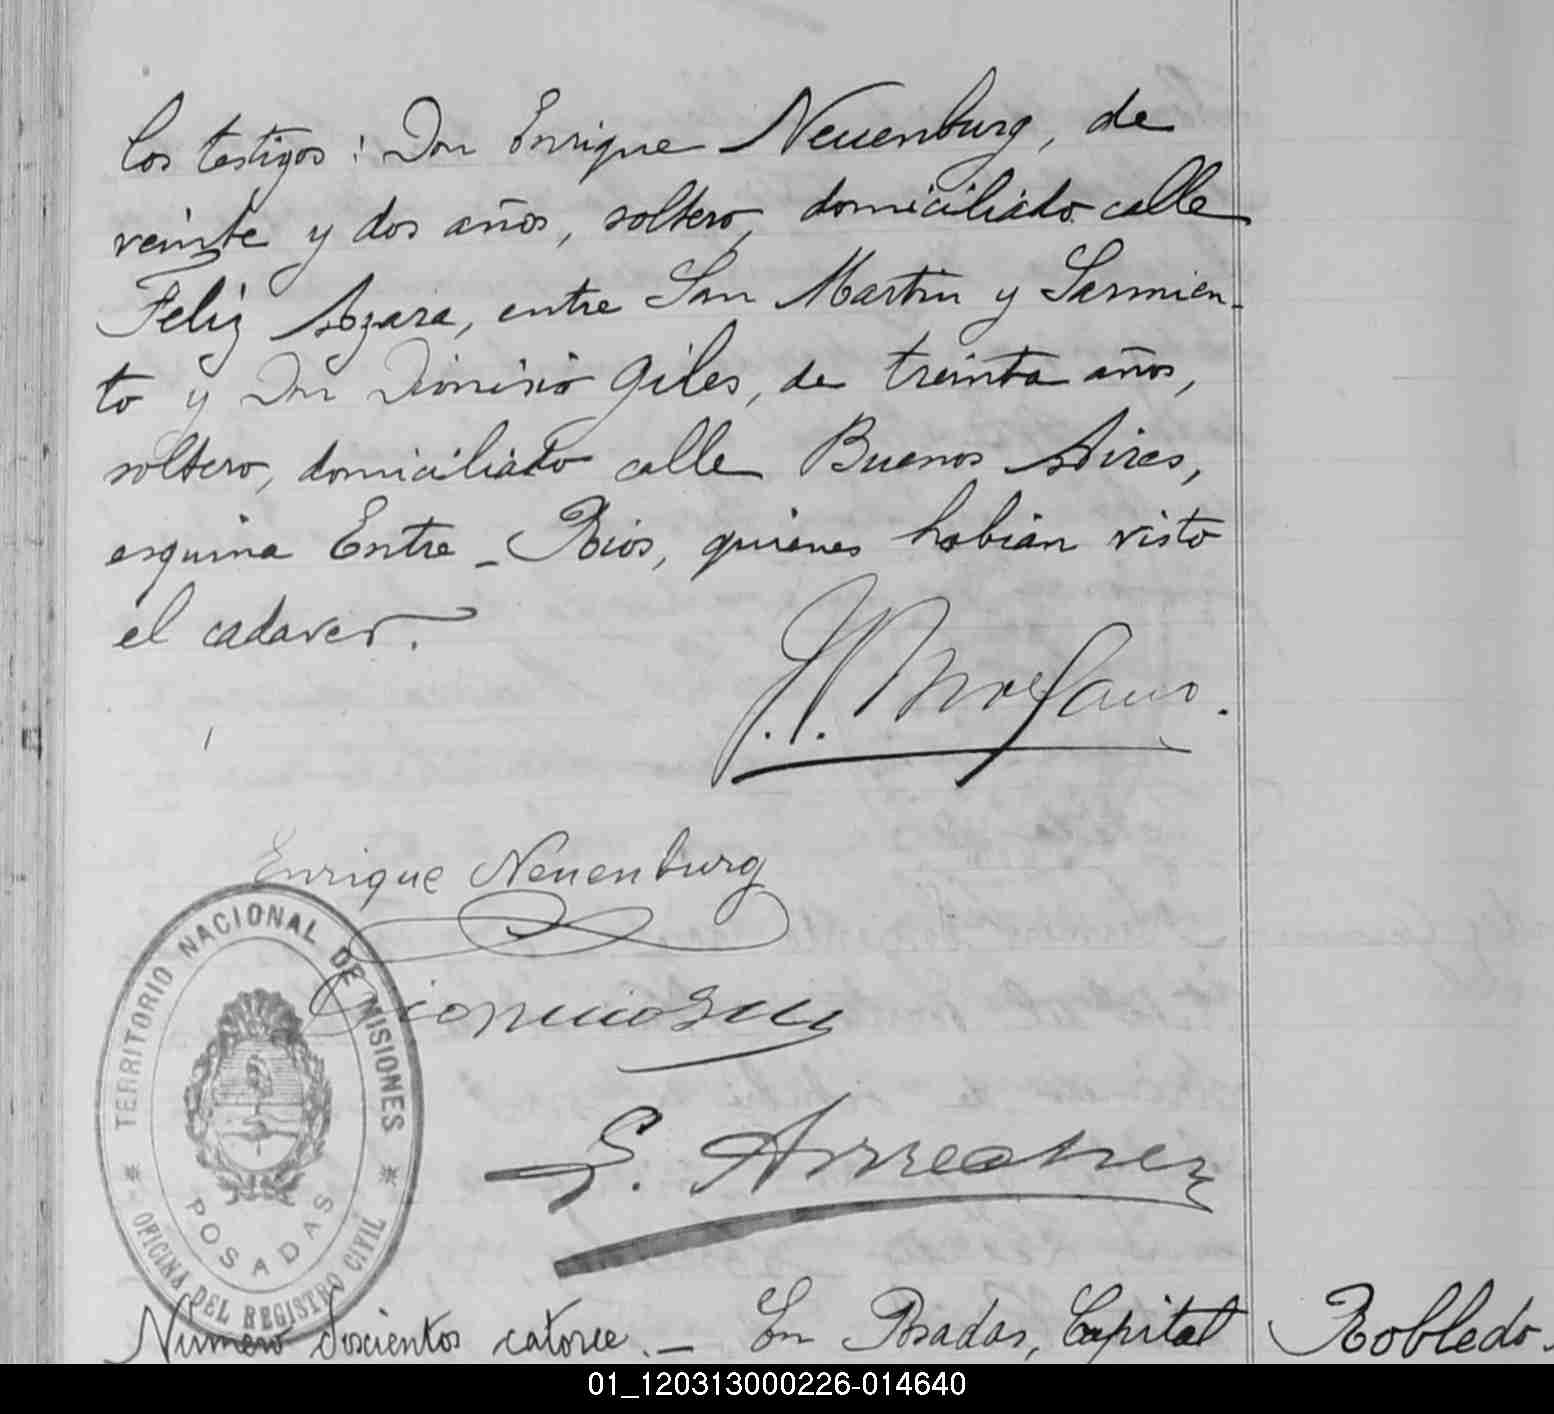 los testigos: Don Enrique Neuenburg, de
veinte y dos años, soltero, domiciliado calle
Feliz Azara, entre San Martin y Sarmien-
to y Don Dionisio Giles, de treinta años,
soltero, domiciliado calle Buenos Aires,
esquina Entre-Rios, quienes habian visto
el cadaver.
Enrique Neuenburg
TERRITORIO NACIONAL DE MISIONES
POSADAS
OFICINA DEL REGISTRO CIVIL
Numero doscientos catorce.- En Posadas, Capital
Robledo.
01_120313000226-014640